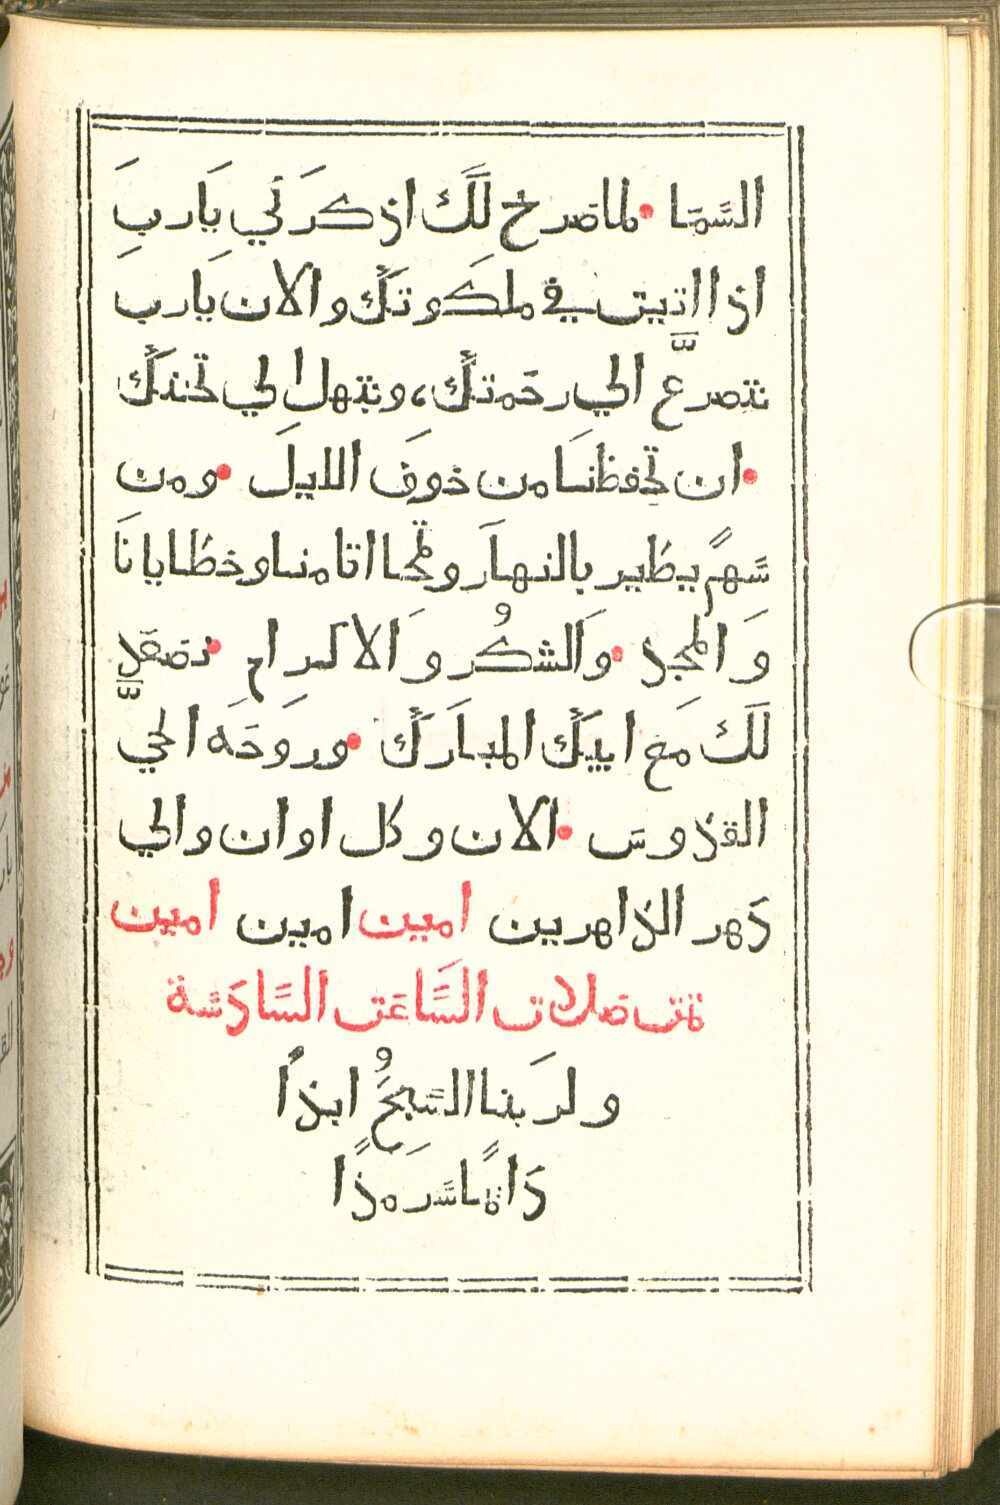 السَّمَا • لماصَرخ لَكَ اذكرَني يَاربِ
اذا اتيت في ملكَوتكَ والان يَارب
نتضرعَّ الي رحَمتكَ، ونتهل الي تحننكَ
• ان تحفظنَا من خوفَ الليلَ • ومن
سَهمٍ يطير بالنهارَ وتمحا اثامنا وخطايانَا
وَالمجد • وَالشكُر وَالاكرام • نصَعَدّ
لَكَ مَع ابيكَ المبارَكَ • وروحَه الحَي
القدوسَ • الان وكل اوان والي
دَهر الداهرين امين امين امين
تمت صَلات السَّاعَت السَّادسَة
ولرَبنا السَبحُّ ابدًا
دَائمًا سَرَمدًا